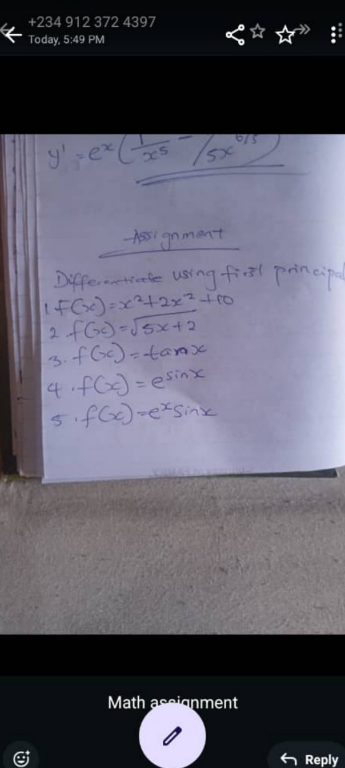 +234 912 372 4397
Today, 5:49 PM
y' = eˣ(
Assignment
Differentiate using first principal
1. f(x) = x² + 2x² + 10
2. f(x) = √5x+2
3. f(x) = tan x
4. f(x) = e^sinx
5. f(x) = eˣ sinx
Math assignment
Reply